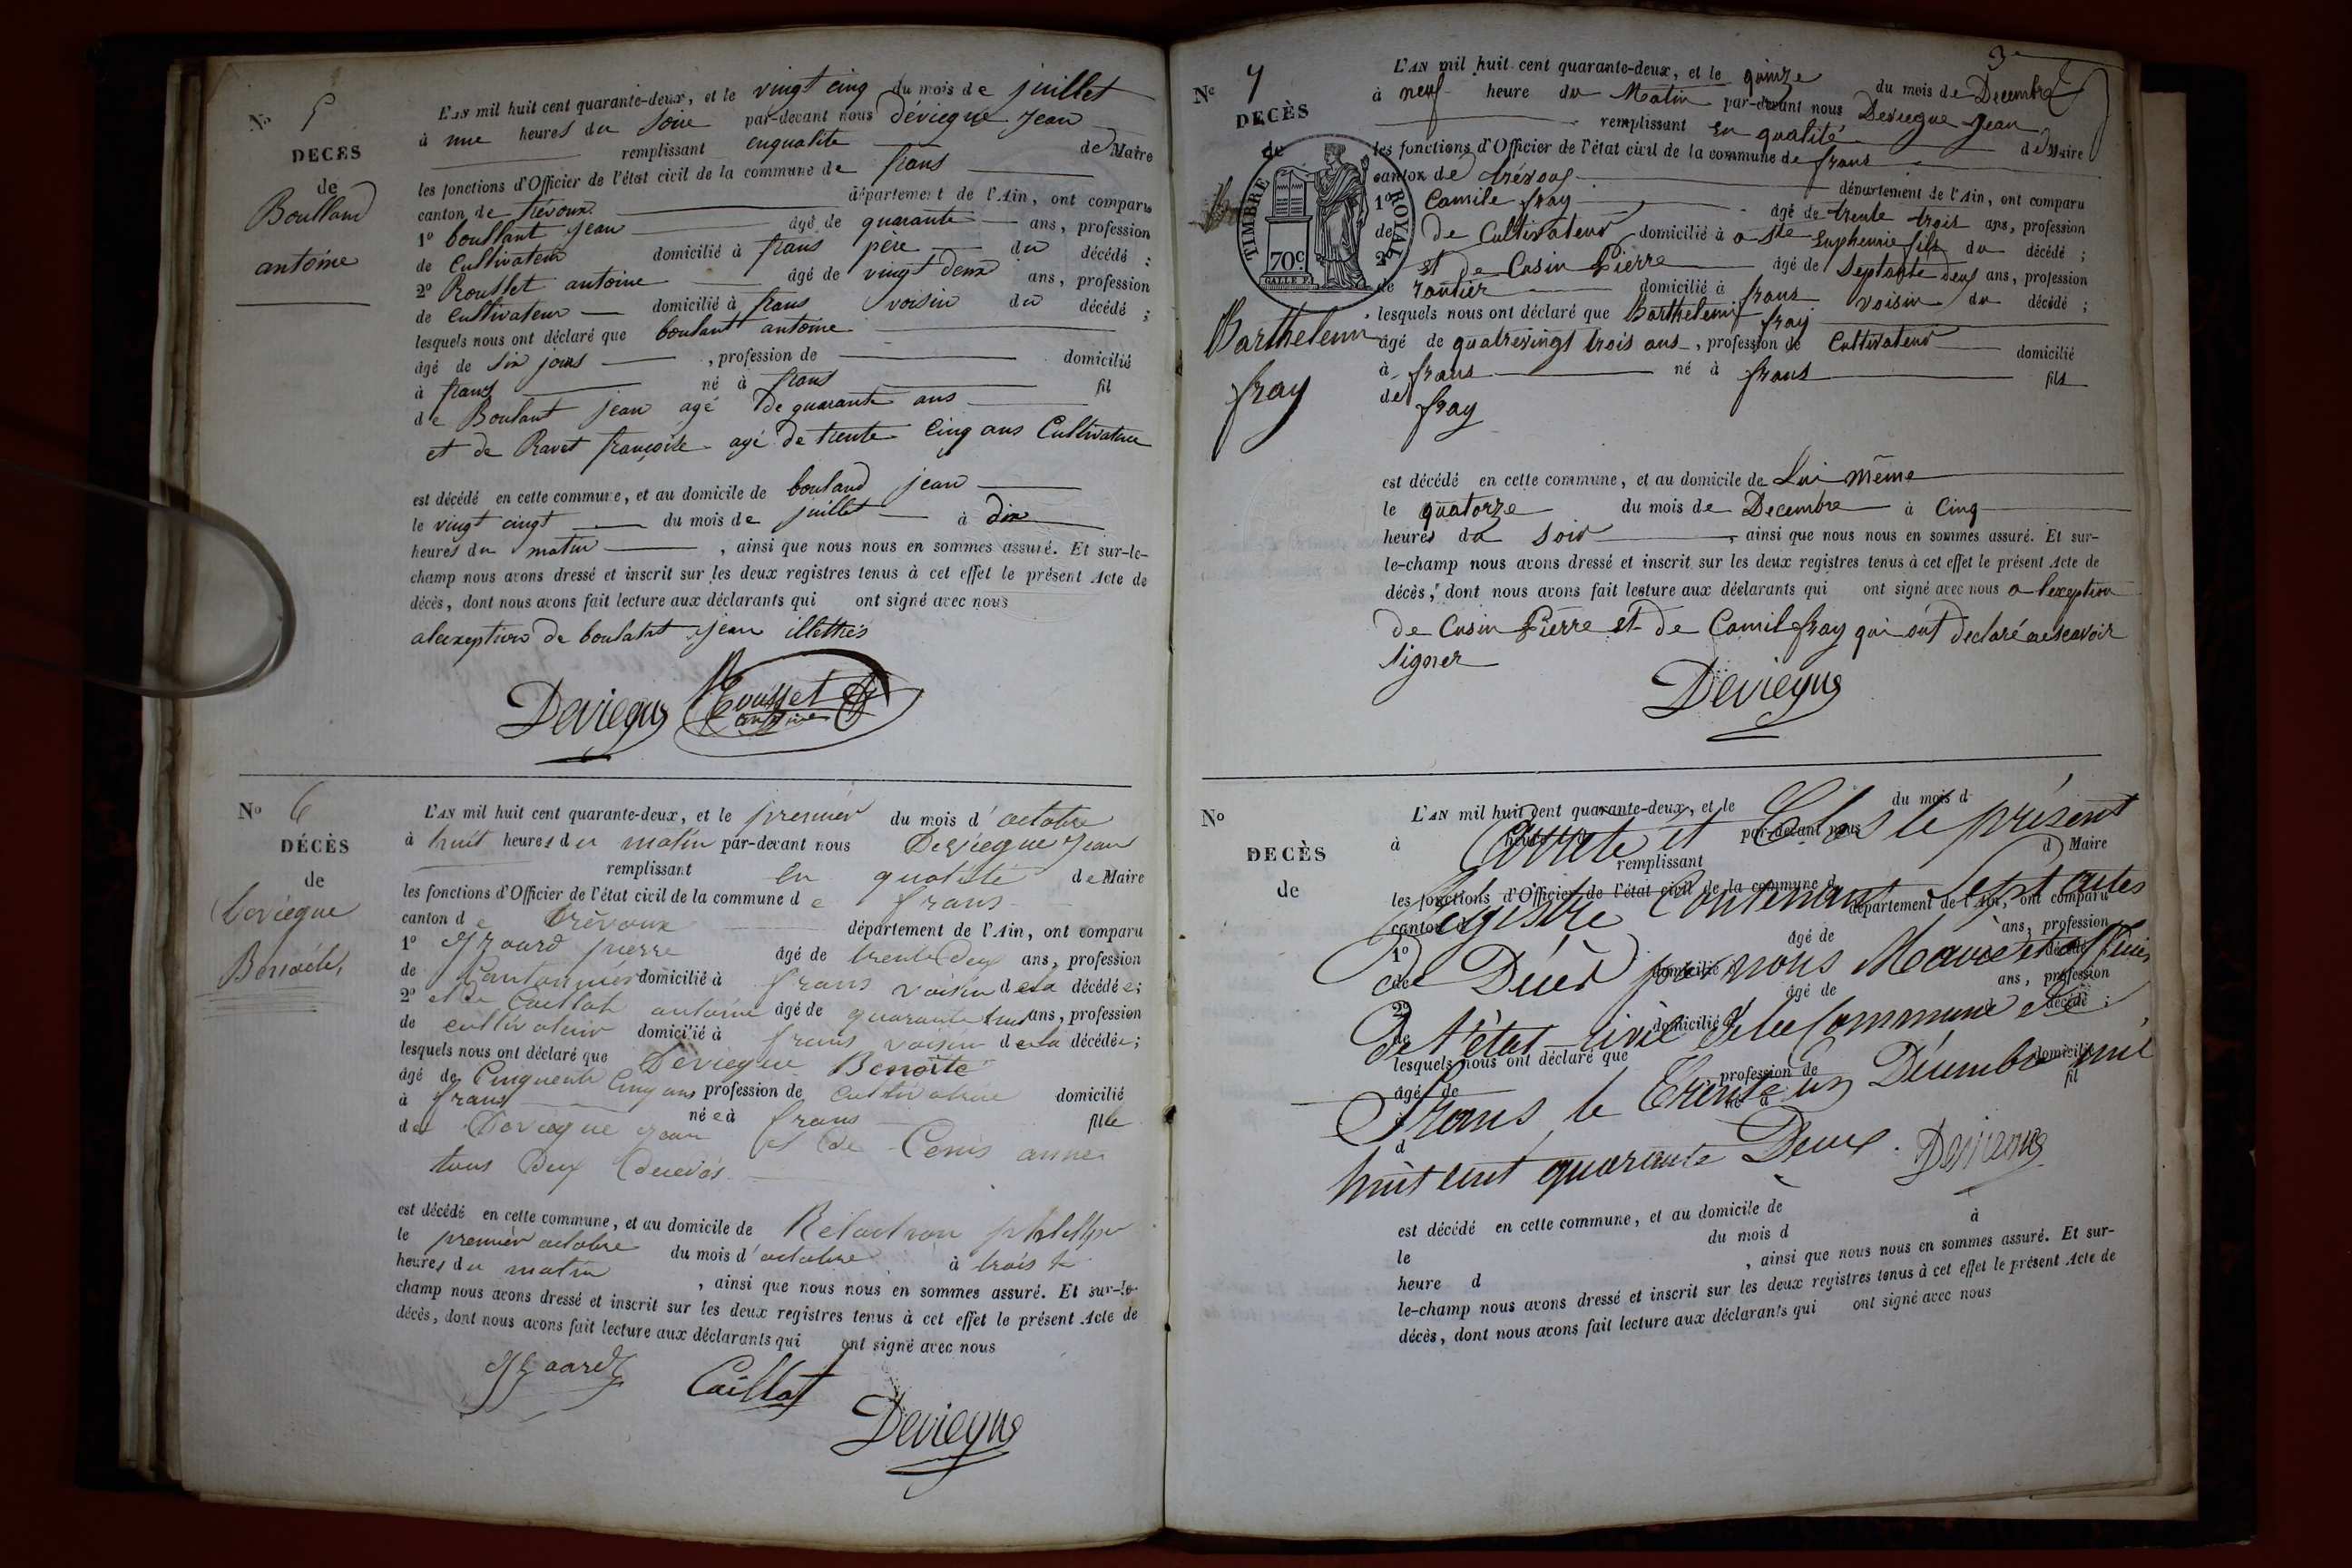 No 5
DECES
de
Boulland
antoine
L'AN mil huit cent quarante-deux, et le vingt cinq du mois de juillet
à une heures du soire par-devant nous déviegue jean
remplissant enqualite de Maire
les fonctions d'Officier de l'état civil de la commune de frans
canton de trévoux département de l'Ain, ont comparu
1o boullant jean âgé de quarante ans, profession
de Cultivateur domicilié à frans père du décédé ;
2o Rousset antoine âgé de vingt deux ans, profession
de cultivateur domicilié à frans voisin du décédé ;
lesquels nous ont déclaré que boulant antoine
âgé de six jours , profession de domicilié
à frans né à frans fil
de Boulant jean agé de quarante ans
et de Ravet françoise agé de trente cinq ans Cultivatrice
est décédé en cette commune, et au domicile de bouland jean
le vingt cingt du mois de juillet à dix
heures du matin , ainsi que nous nous en sommes assuré. Et sur-le-
champ nous avons dressé et inscrit sur les deux registres tenus à cet effet le présent Acte de
décès, dont nous avons fait lecture aux déclarants qui ont signé avec nous
alexeption de boulant jean illettrés
Deviegue Rousset antoine
No 6
DÉCÈS
de
Deviegue
Benoite
L'AN mil huit cent quarante-deux, et le premier du mois d'octobre
à huit heures du matin par-devant nous Deviegue Jean
remplissant en qualité de Maire
les fonctions d'Officier de l'état civil de la commune de frans
canton de Trévoux département de l'Ain, ont comparu
1o pierre âgé de trente deux ans, profession
de Cantonnier domicilié à frans voisin de la décédée;
2o et de Caillat antoine âgé de quarante ans, profession
de cultivateur domicilié à frans voisin de la décédée;
lesquels nous ont déclaré que Deviegue Benoite
âgé de Cinquente Cinq ans profession de cultivatrice domicilié
à frans née à frans fille
de Deviegue Jean et de Cenis anne
tous Deux Décédés
est décédé en cette commune, et au domicile de
le premier octobre du mois d'octobre à trois
heures du matin , ainsi que nous nous en sommes assuré. Et sur-le-
champ nous avons dressé et inscrit sur les deux registres tenus à cet effet le présent Acte de
décès, dont nous avons fait lecture aux déclarants qui ont signé avec nous
Caillat
Deviegue
3e
No 7
DECÈS
de
TIMBRE ROYAL
70c
Barthelemi
fray
L'AN mil huit cent quarante-deux, et le quinze du mois de Decembre
à neuf heure du Matin par-devant nous Deviegue Jean
remplissant en qualité de Maire
les fonctions d'Officier de l'état civil de la commune de frans
canton de trévoux département de l'Ain, ont comparu
1o Camile fray âgé de trente trois ans, profession
de de Cultivateur domicilié à a ste Euphemie fils du décédé ;
2o et de Cusin Pierre âgé de Septante deux ans, profession
de rantier domicilié à frans voisin du décédé ;
lesquels nous ont déclaré que Barthelemi fray
âgé de quatrevingt trois ans, profession de Cultivateur domicilié
à frans né à frans fils
de fray
est décédé en cette commune, et au domicile de Lui même
le quatorze du mois de Decembre à Cinq
heures du soir , ainsi que nous nous en sommes assuré. Et sur-
le-champ nous avons dressé et inscrit sur les deux registres tenus à cet effet le présent Acte de
décès, dont nous avons fait lecture aux déclarants qui ont signé avec nous a l'exeption
de Cusin Pierre et de Camile fray qui ont declaré ne scavoir
signer
Deviegue
No
DECÈS
de
L'AN mil huit cent quarante-deux, et le du mois d
à heure d par-devant nous
remplissant d Maire
les fonctions d'Officier de l'état civil de la commune d
canton d département de l'Ain, ont comparu
1o âgé de ans, profession
de domicilié à décédé
2o âgé de ans, profession
de domicilié à décédé ;
lesquels nous ont déclaré que
âgé de profession de domicilié
à né à fil
d
Arrêté et Clos le présent
Registre Contenant Sept actes
de Décès par nous Maire et officier
de l'état civil de la Commune de
Frans le Trente un Décembre mil
huit cent quarante Deux. Deviegue
est décédé en cette commune, et au domicile de
le du mois d à
heure d , ainsi que nous nous en sommes assuré. Et sur-
le-champ nous avons dressé et inscrit sur les deux registres tenus à cet effet le présent Acte de
décès, dont nous avons fait lecture aux déclarants qui ont signé avec nous